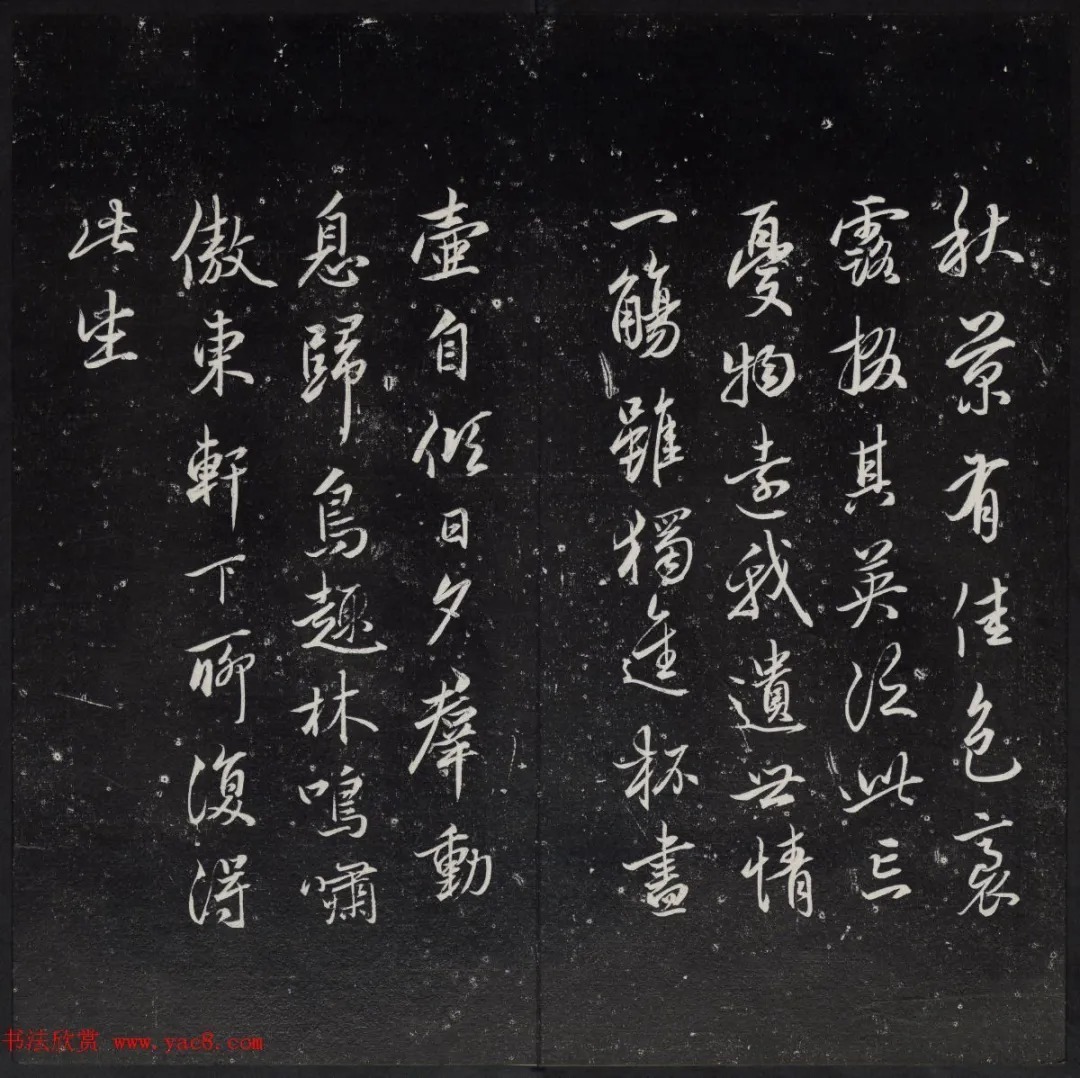 秋菊有佳色裛
露掇其英汎此忘
憂物遠我遺世情
一觴雖獨進杯盡
壺自傾日夕羣動
息歸鳥趨林鳴嘯
傲東軒下聊復得
此生
书法欣赏 www.yac8.com